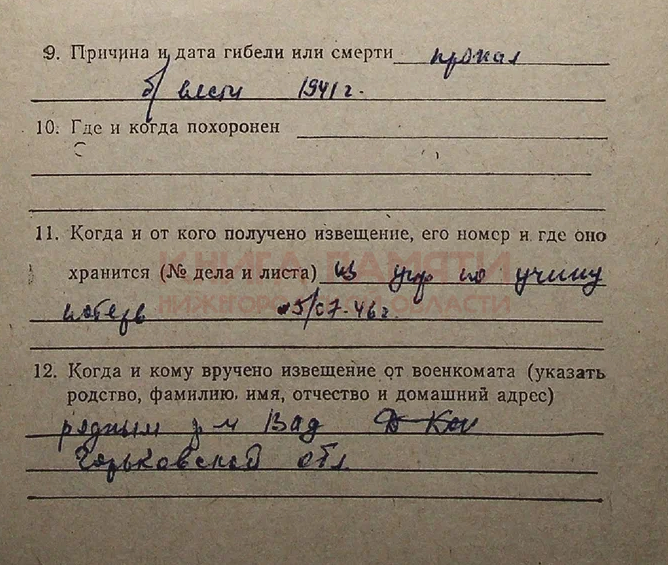 9. Причина и дата гибели или смерти пропал
б/ вести 1941 г.
10. Где и когда похоронен
11. Когда и от кого получено извещение, его номер и где оно
хранится (№ дела и листа) из упр по учету
КНИГА ПАМЯТИ
потерь 5/07-46 г.
НИЖЕГОРОДСКОЙ ОБЛАСТИ
12. Когда и кому вручено извещение от военкомата (указать
родство, фамилию, имя, отчество и домашний адрес)
родным Вад
Горьковской обл